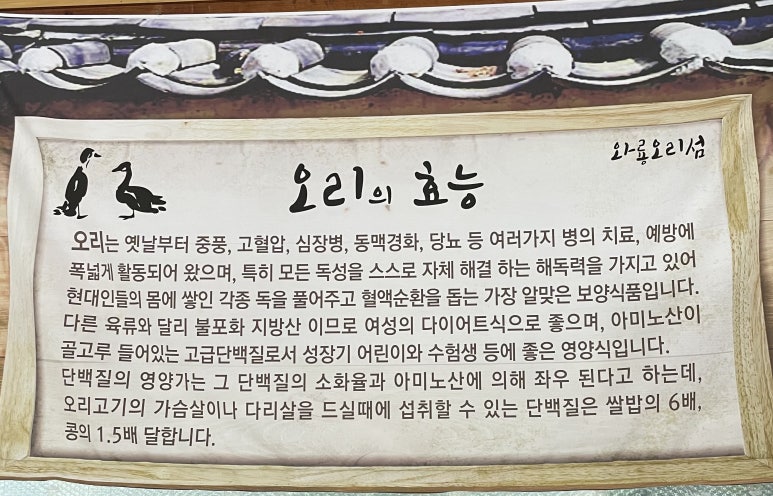 와룡오리섬
오리의 효능
오리는 옛날부터 중풍, 고혈압, 심장병, 동맥경화, 당뇨 등 여러가지 병의 치료, 예방에
폭넓게 활동되어 왔으며, 특히 모든 독성을 스스로 자체 해결 하는 해독력을 가지고 있어
현대인들의 몸에 쌓인 각종 독을 풀어주고 혈액순환을 돕는 가장 알맞은 보양식품입니다.
다른 육류와 달리 불포화 지방산 이므로 여성의 다이어트식으로 좋으며, 아미노산이
골고루 들어있는 고급단백질로서 성장기 어린이와 수험생 등에 좋은 영양식입니다.
단백질의 영양가는 그 단백질의 소화율과 아미노산에 의해 좌우 된다고 하는데,
오리고기의 가슴살이나 다리살을 드실때에 섭취할 수 있는 단백질은 쌀밥의 6배,
콩의 1.5배 달합니다.